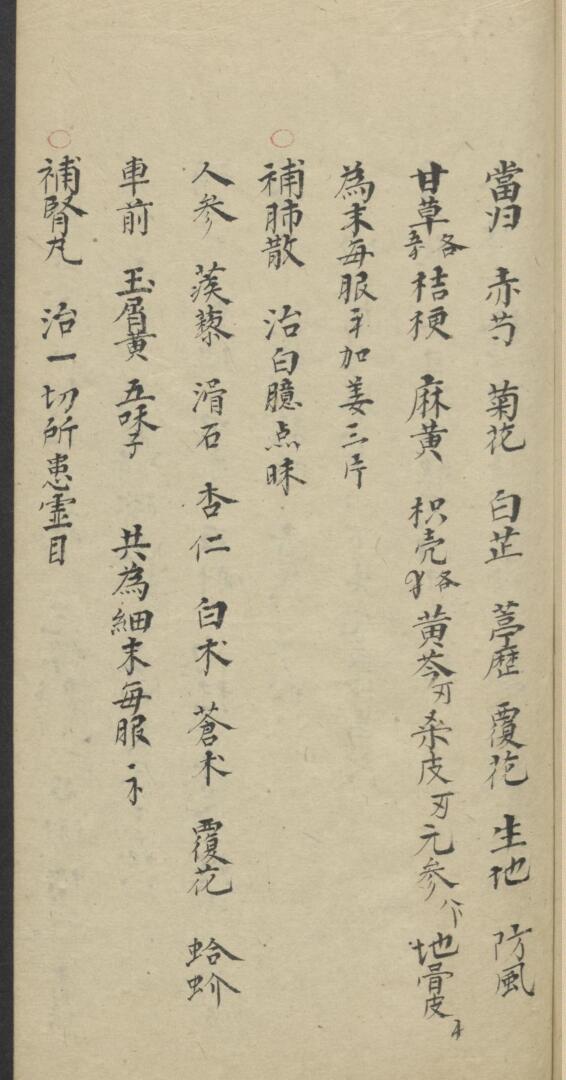 當归 赤芍 菊花 白芷 葶歷 覆花 生地 防風
甘草各 桔梗 麻黄 枳壳各 黄芩 桑皮 元参 地骨皮
為末每服 加姜三片
補肺散 治白臆点昧
人参 蒺藜 滑石 杏仁 白术 蒼术 覆花 蛤蚧
車前 玉屑黄 五味子 共為細末每服
補腎丸 治一切所患雲目